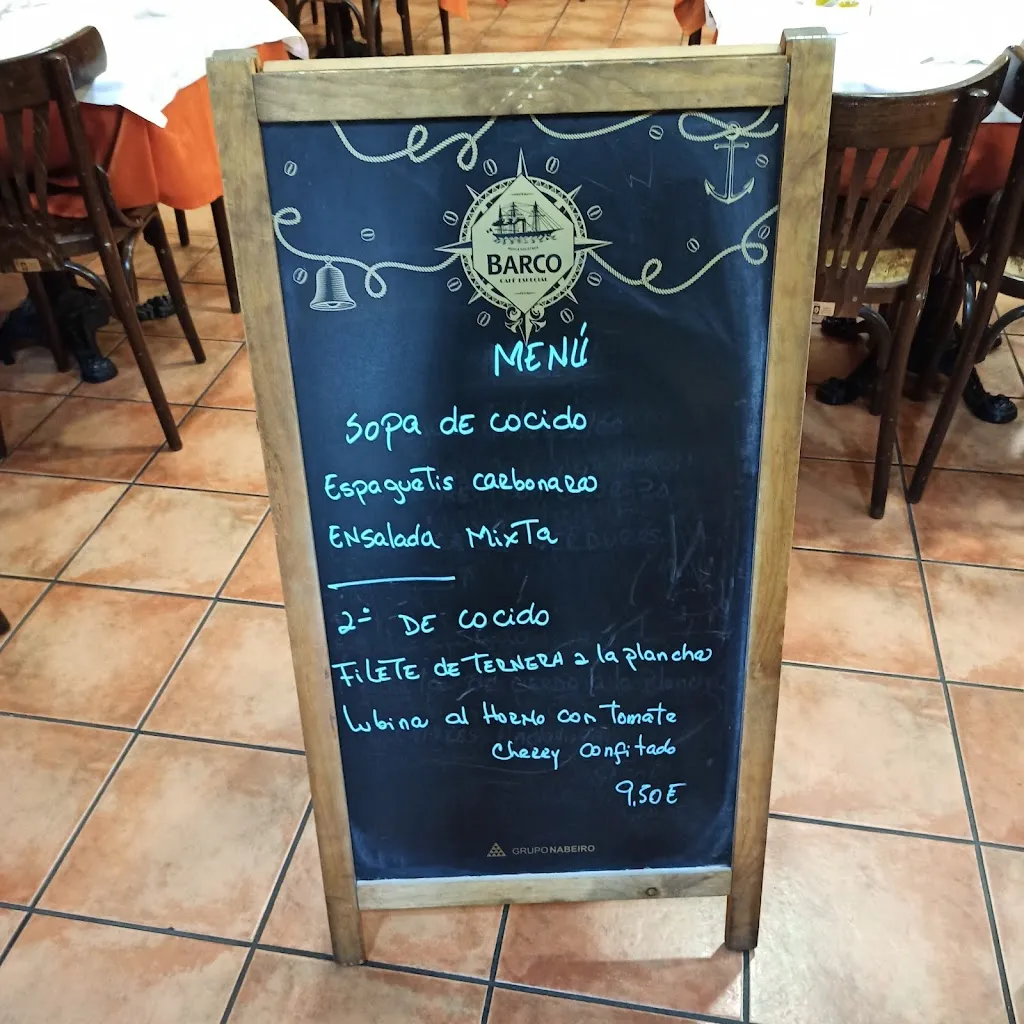 BARCO
CAFÉ ESPECIAL
MENÚ
Sopa de cocido
Espaguetis carbonara
Ensalada Mixta
2º DE cocido
Filete de Ternera a la plancha
Lubina al Horno con Tomate
Cherry confitado
9,50E
GRUPONABEIRO